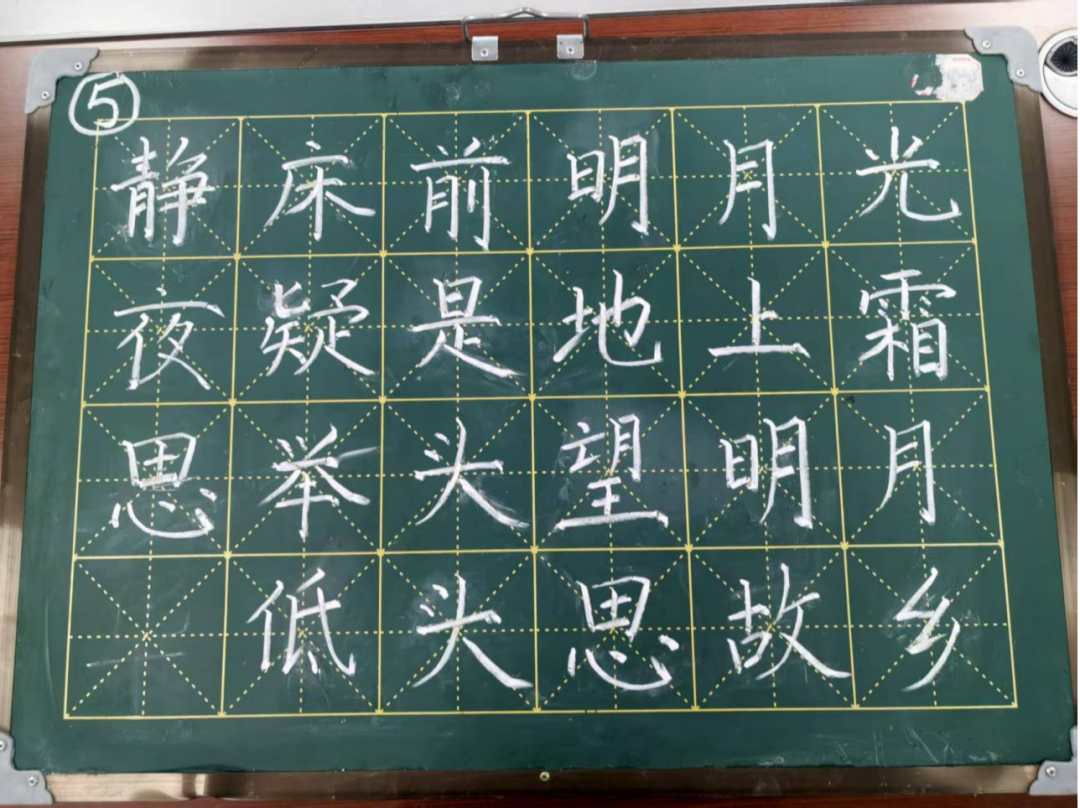 ⑤
静夜思
床前明月光
疑是地上霜
举头望明月
低头思故乡